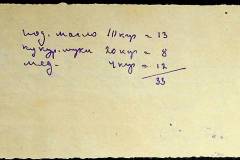 под. масло 111 кур = 13
кукур. муки 20 кур = 8
мед - 4 кур = 12
33